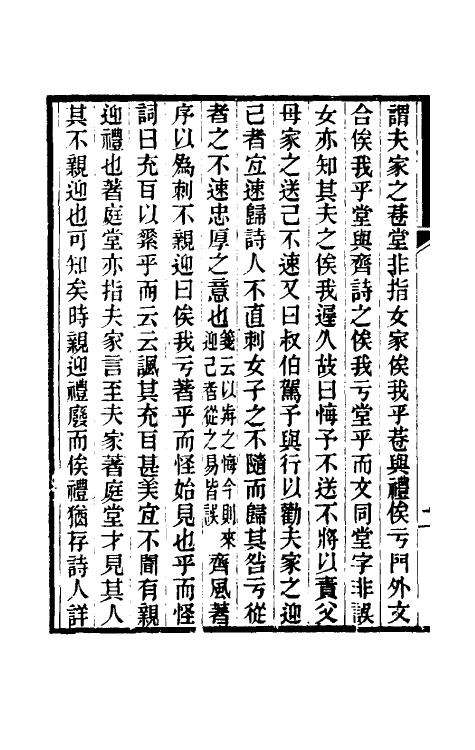 謂夫家之巷堂非指女家俟我乎巷與禮俟亏門外文
合俟我乎堂與齊詩之俟我亏堂乎而文同堂字非誤
女亦知其夫之俟我遲久故曰悔予不送不將以責父
母家之送己不速又曰叔伯駕予與行以勸夫家之迎
己者宜速歸詩人不直刺女子之不隨而歸其咎亏從
者之不速忠厚之意也箋云以歬之悔今則來迎己者從之易皆誤齊風著
序以為刺不親迎曰俟我亏著乎而怪始見也乎而怪
詞曰充耳以縏乎而云云諷其充耳甚美宜不聞有親
迎禮也著庭堂亦指夫家言至夫家著庭堂才見其人
其不親迎也可知矣時親迎禮廢而俟禮猶存詩人詳